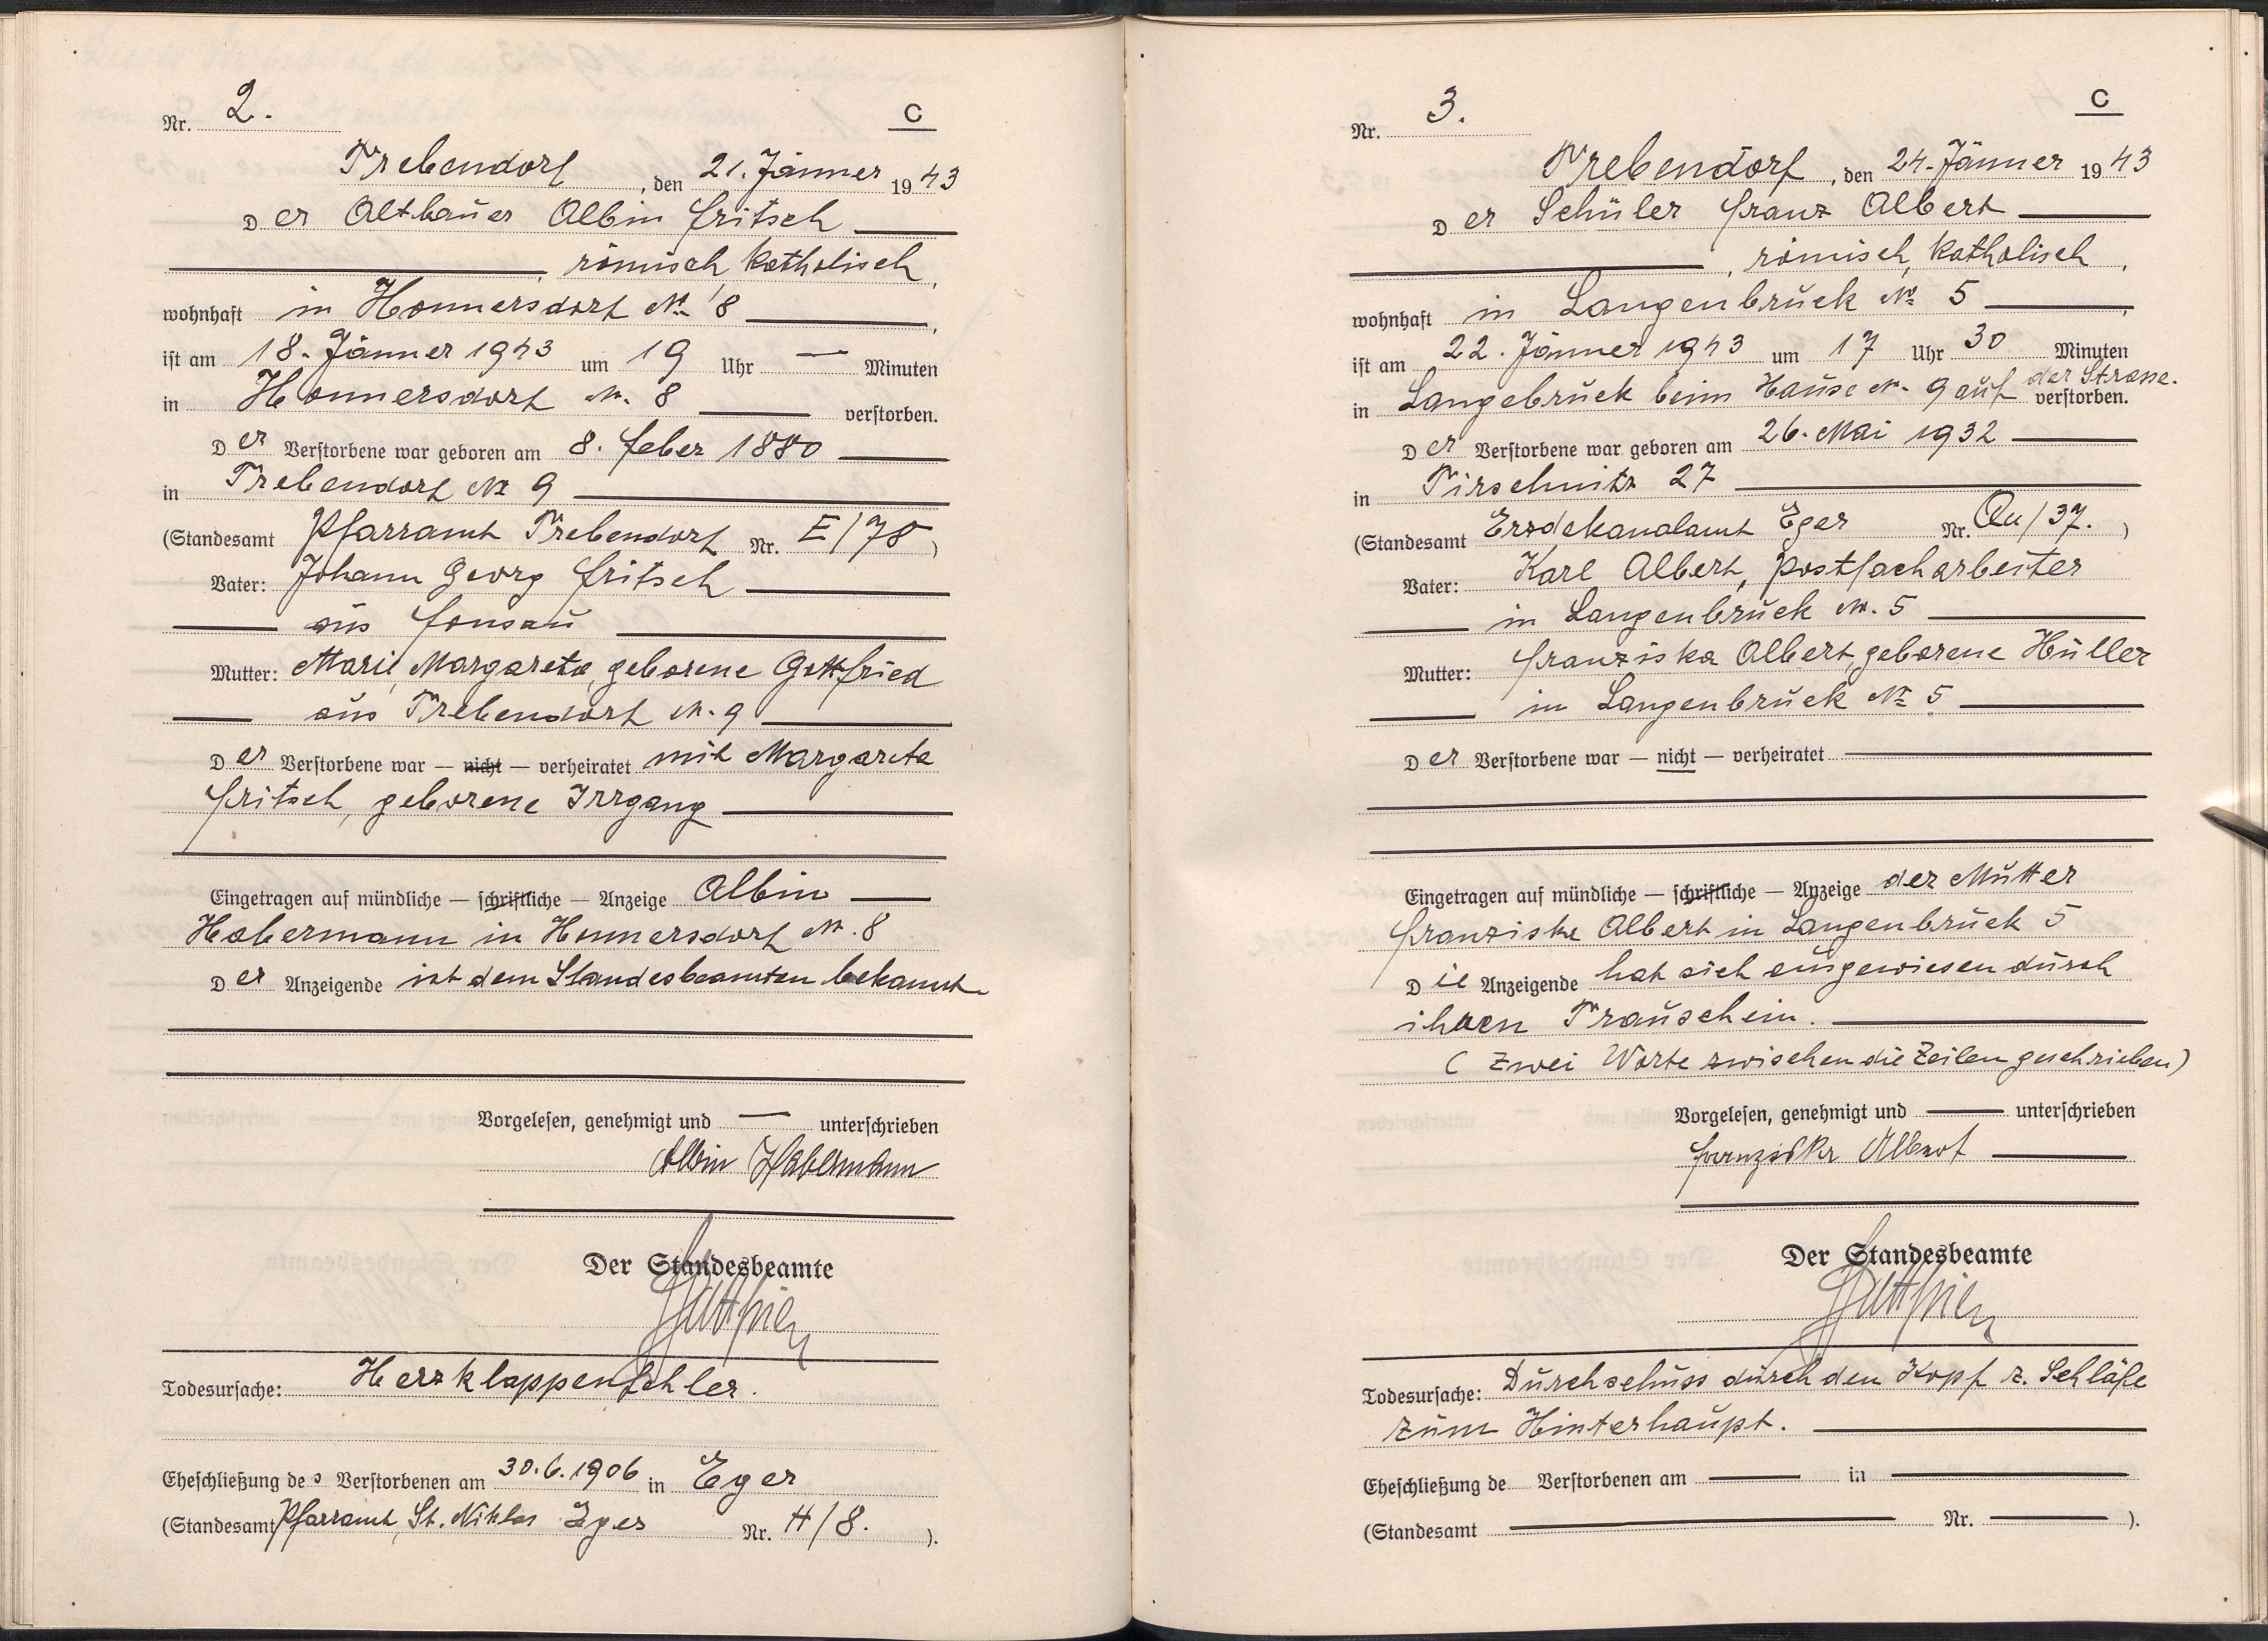 Nr. 2. C
Trebendorf, den 21. Jänner 1943
Der Altbauer Albin Fritsch
, römisch katholisch,
wohnhaft in Honnersdorf № 8,
ist am 18. Jänner 1943 um 19 Uhr — Minuten
in Honnersdorf N. 8 verstorben.
Der Verstorbene war geboren am 8. Feber 1880
in Trebendorf № 9
(Standesamt Pfarramt Trebendorf Nr. E/78)
Vater: Johann Georg Fritsch
aus Fonsau
Mutter: Marie, Margareta, geborene Gottfried
aus Trebendorf N. 9
Der Verstorbene war — nicht — verheiratet mit Margareta
Fritsch, geborene Irrgang
Eingetragen auf mündliche — schriftliche — Anzeige Albin
Habermann in Honnersdorf N. 8
Der Anzeigende ist dem Standesbeamten bekannt.
Vorgelesen, genehmigt und — unterschrieben
Albin Habermann
Der Standesbeamte
Todesursache: Herzklappenfehler.
Eheschließung des Verstorbenen am 30.6.1906 in Eger
(Standesamt Pfarramt, St. Niklas Eger Nr. H/8.).
Nr. 3. C
Trebendorf, den 24. Jänner 1943
Der Schüler Franz Albert
, römisch, katholisch,
wohnhaft in Langenbruck № 5,
ist am 22. Jänner 1943 um 17 Uhr 30 Minuten
in Langebruck beim Hause N. 9 auf der Strasse. verstorben.
Der Verstorbene war geboren am 26. Mai 1932
in Tirschnitz 27
(Standesamt Erzdekanalamt Eger Nr. Qu/37.)
Vater: Karl Albert, Postfacharbeiter
in Langenbruck N. 5
Mutter: Franziska Albert, geborene Hüller
in Langenbruck № 5
Der Verstorbene war — nicht — verheiratet
Eingetragen auf mündliche — schriftliche — Anzeige der Mutter
Franziska Albert in Langenbruck 5
Die Anzeigende hat sich ausgewiesen durch
ihren Trauschein.
(Zwei Worte zwischen die Zeilen geschrieben)
Vorgelesen, genehmigt und — unterschrieben
Franziska Albert
Der Standesbeamte
Todesursache: Durchschuss durch den Kopf r. Schläfe
zum Hinterhaupt.
Eheschließung de Verstorbenen am — in —
(Standesamt — Nr. —).